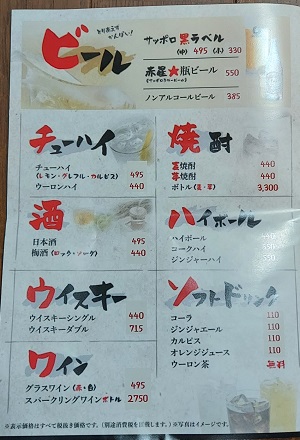 ビール
とりあえず
かんぱい!
サッポロ黒ラベル
(中) 495 (小) 330
赤星★瓶ビール 550
(サッポロラガービール)
ノンアルコールビール 385
チューハイ
チューハイ
(レモン・グレフル・カルピス) 495
ウーロンハイ 440
焼酎
麦焼酎 440
芋焼酎 440
ボトル(麦・芋) 3,300
酒
日本酒 495
梅酒(ロック・ソーダ) 440
ハイボール
ハイボール 440
コークハイ 440
ジンジャーハイ 440
ウイスキー
ウイスキーシングル 440
ウイスキーダブル 715
ソフトドリンク
コーラ 110
ジンジャエール 110
カルピス 110
オレンジジュース 110
ウーロン茶 無料
ワイン
グラスワイン(赤・白) 495
スパークリングワインボトル 2750
※表示価格はすべて税抜き価格です。(別途消費税を頂戴します。)※写真はイメージです。